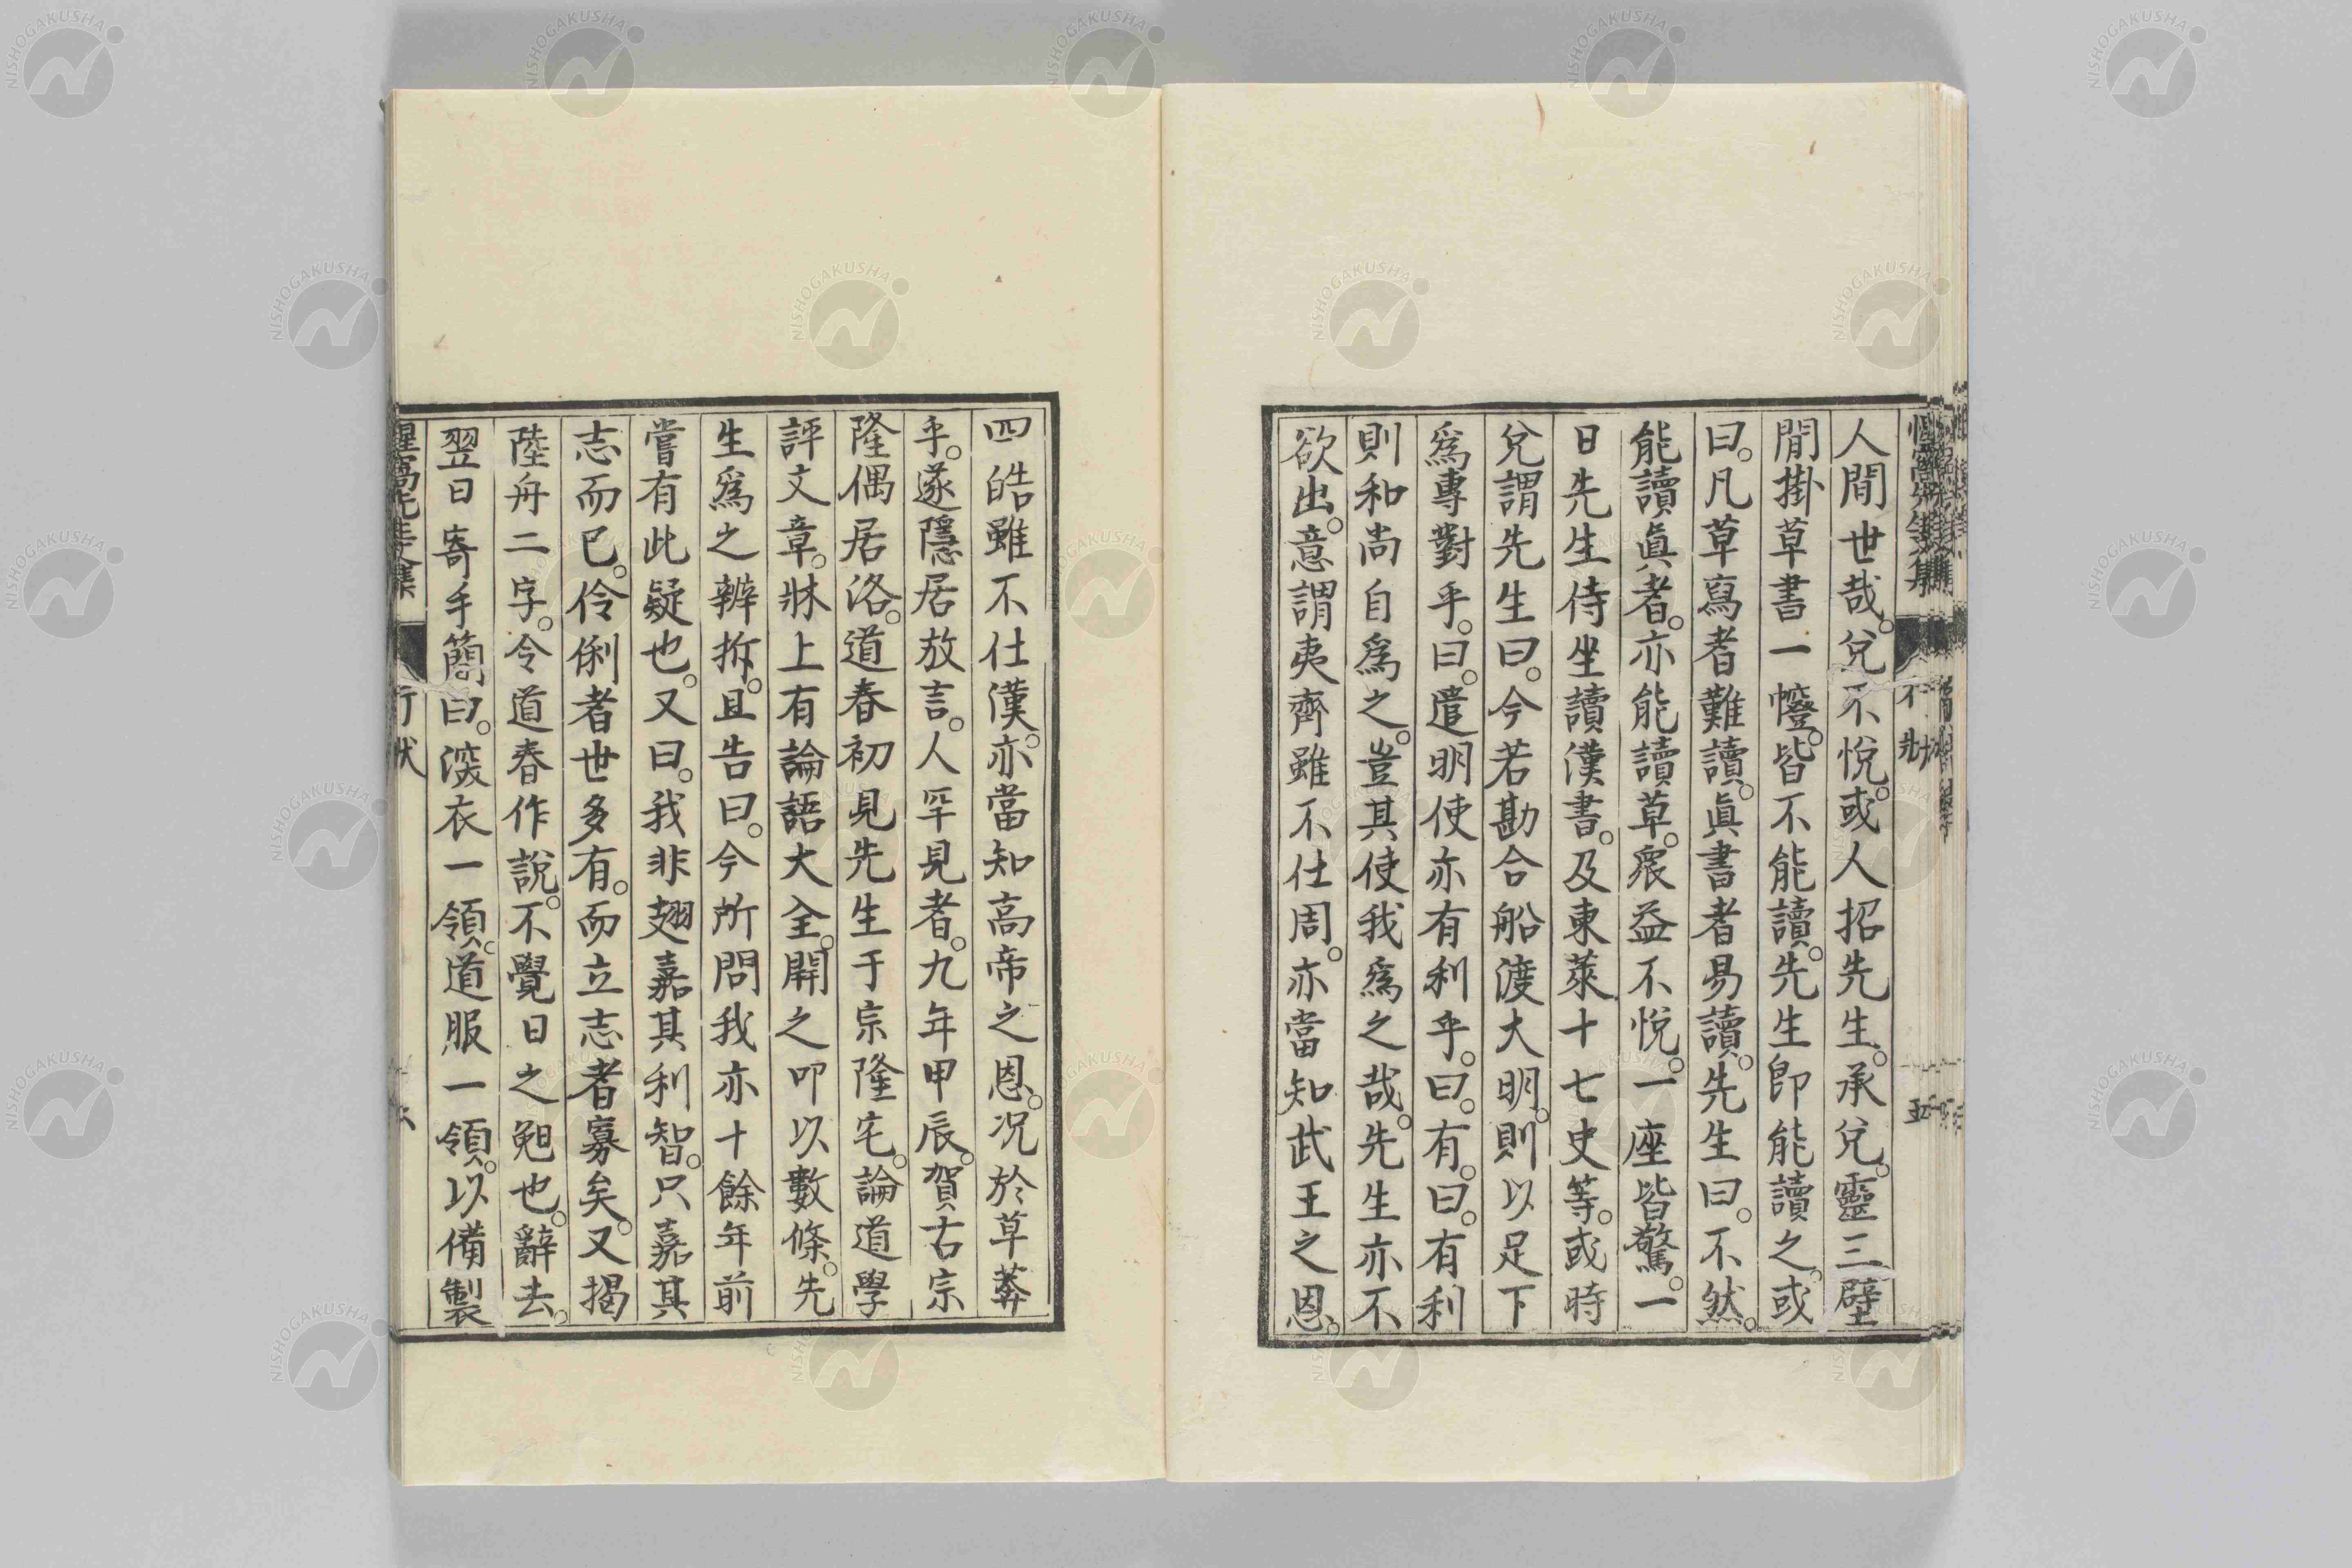 人間世哉。兌不悅。或人招先生。承兌。靈三壁
間掛草書一幢。皆不能讀。先生卽能讀之。或
曰。凡草寫者難讀。眞書者易讀。先生曰。不然。
能讀眞者。亦能讀草。衆益不悅。一座皆驚。一
日先生侍坐讀漢書。及東萊十七史等。或時
兌謂先生曰。今若勘合船渡大明。則以足下
爲專對乎。曰。遣明使亦有利乎。曰。有。曰。有利
則和尚自爲之。豈其使我爲之哉。先生亦不
欲出。意謂夷齊雖不仕周。亦當知武王之恩。
四皓雖不仕漢。亦當知高帝之恩。況於草莽
乎。遂隱居放言。人罕見者。九年甲辰。賀古宗
隆偶居洛。道春初見先生于宗隆宅。論道學
評文章。牀上有論語大全。開之叩以數條。先
生爲之辨拆。且告曰。今所問我亦十餘年前
嘗有此疑也。又曰。我非翅嘉其利智。只嘉其
志而已。伶俐者世多有。而立志者寡矣。又揭
陸舟二字。令道春作說。不覺日之勉也。辭去。
翌日寄手簡曰。深衣一領。道服一領。以備製
惺窩先生文集 行狀
NISHOGAKUSHA